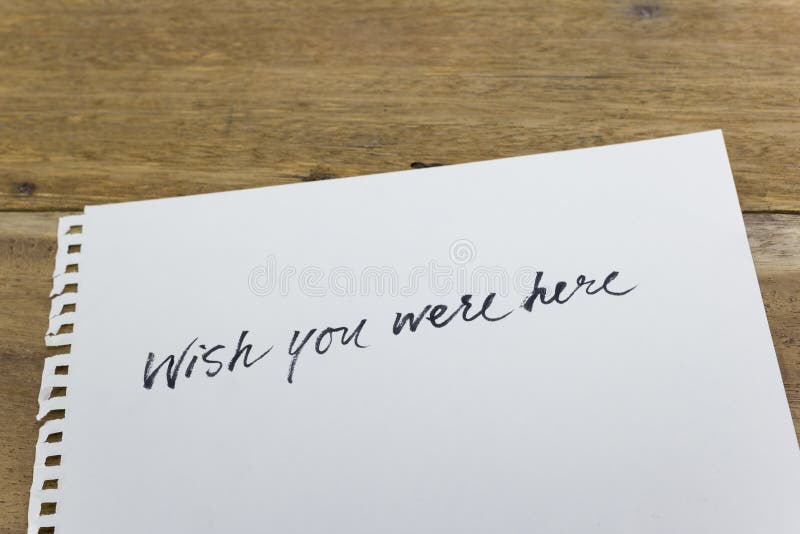 Wish you were here
dreamstime